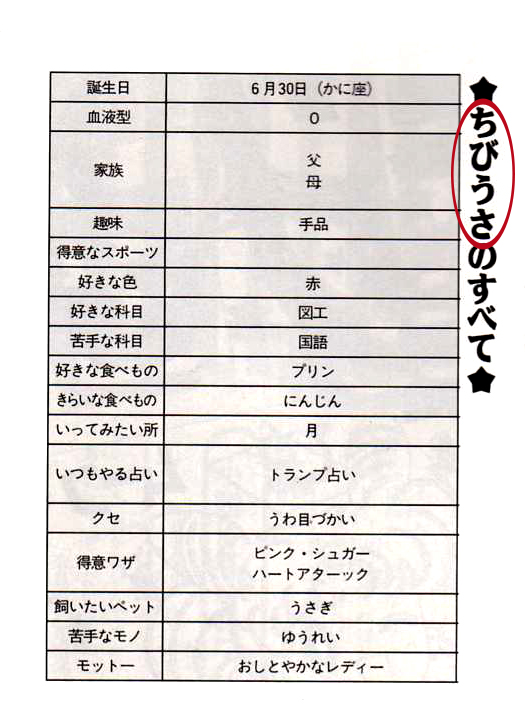 ★ちびうさのすべて★
誕生日 6月30日（かに座）
血液型 O
家族 父
母
趣味 手品
得意なスポーツ
好きな色 赤
好きな科目 図工
苦手な科目 国語
好きな食べもの プリン
きらいな食べもの にんじん
いってみたい所 月
いつもやる占い トランプ占い
クセ うわ目づかい
得意ワザ ピンク・シュガー
ハートアターック
飼いたいペット うさぎ
苦手なモノ ゆうれい
モットー おしとやかなレディー